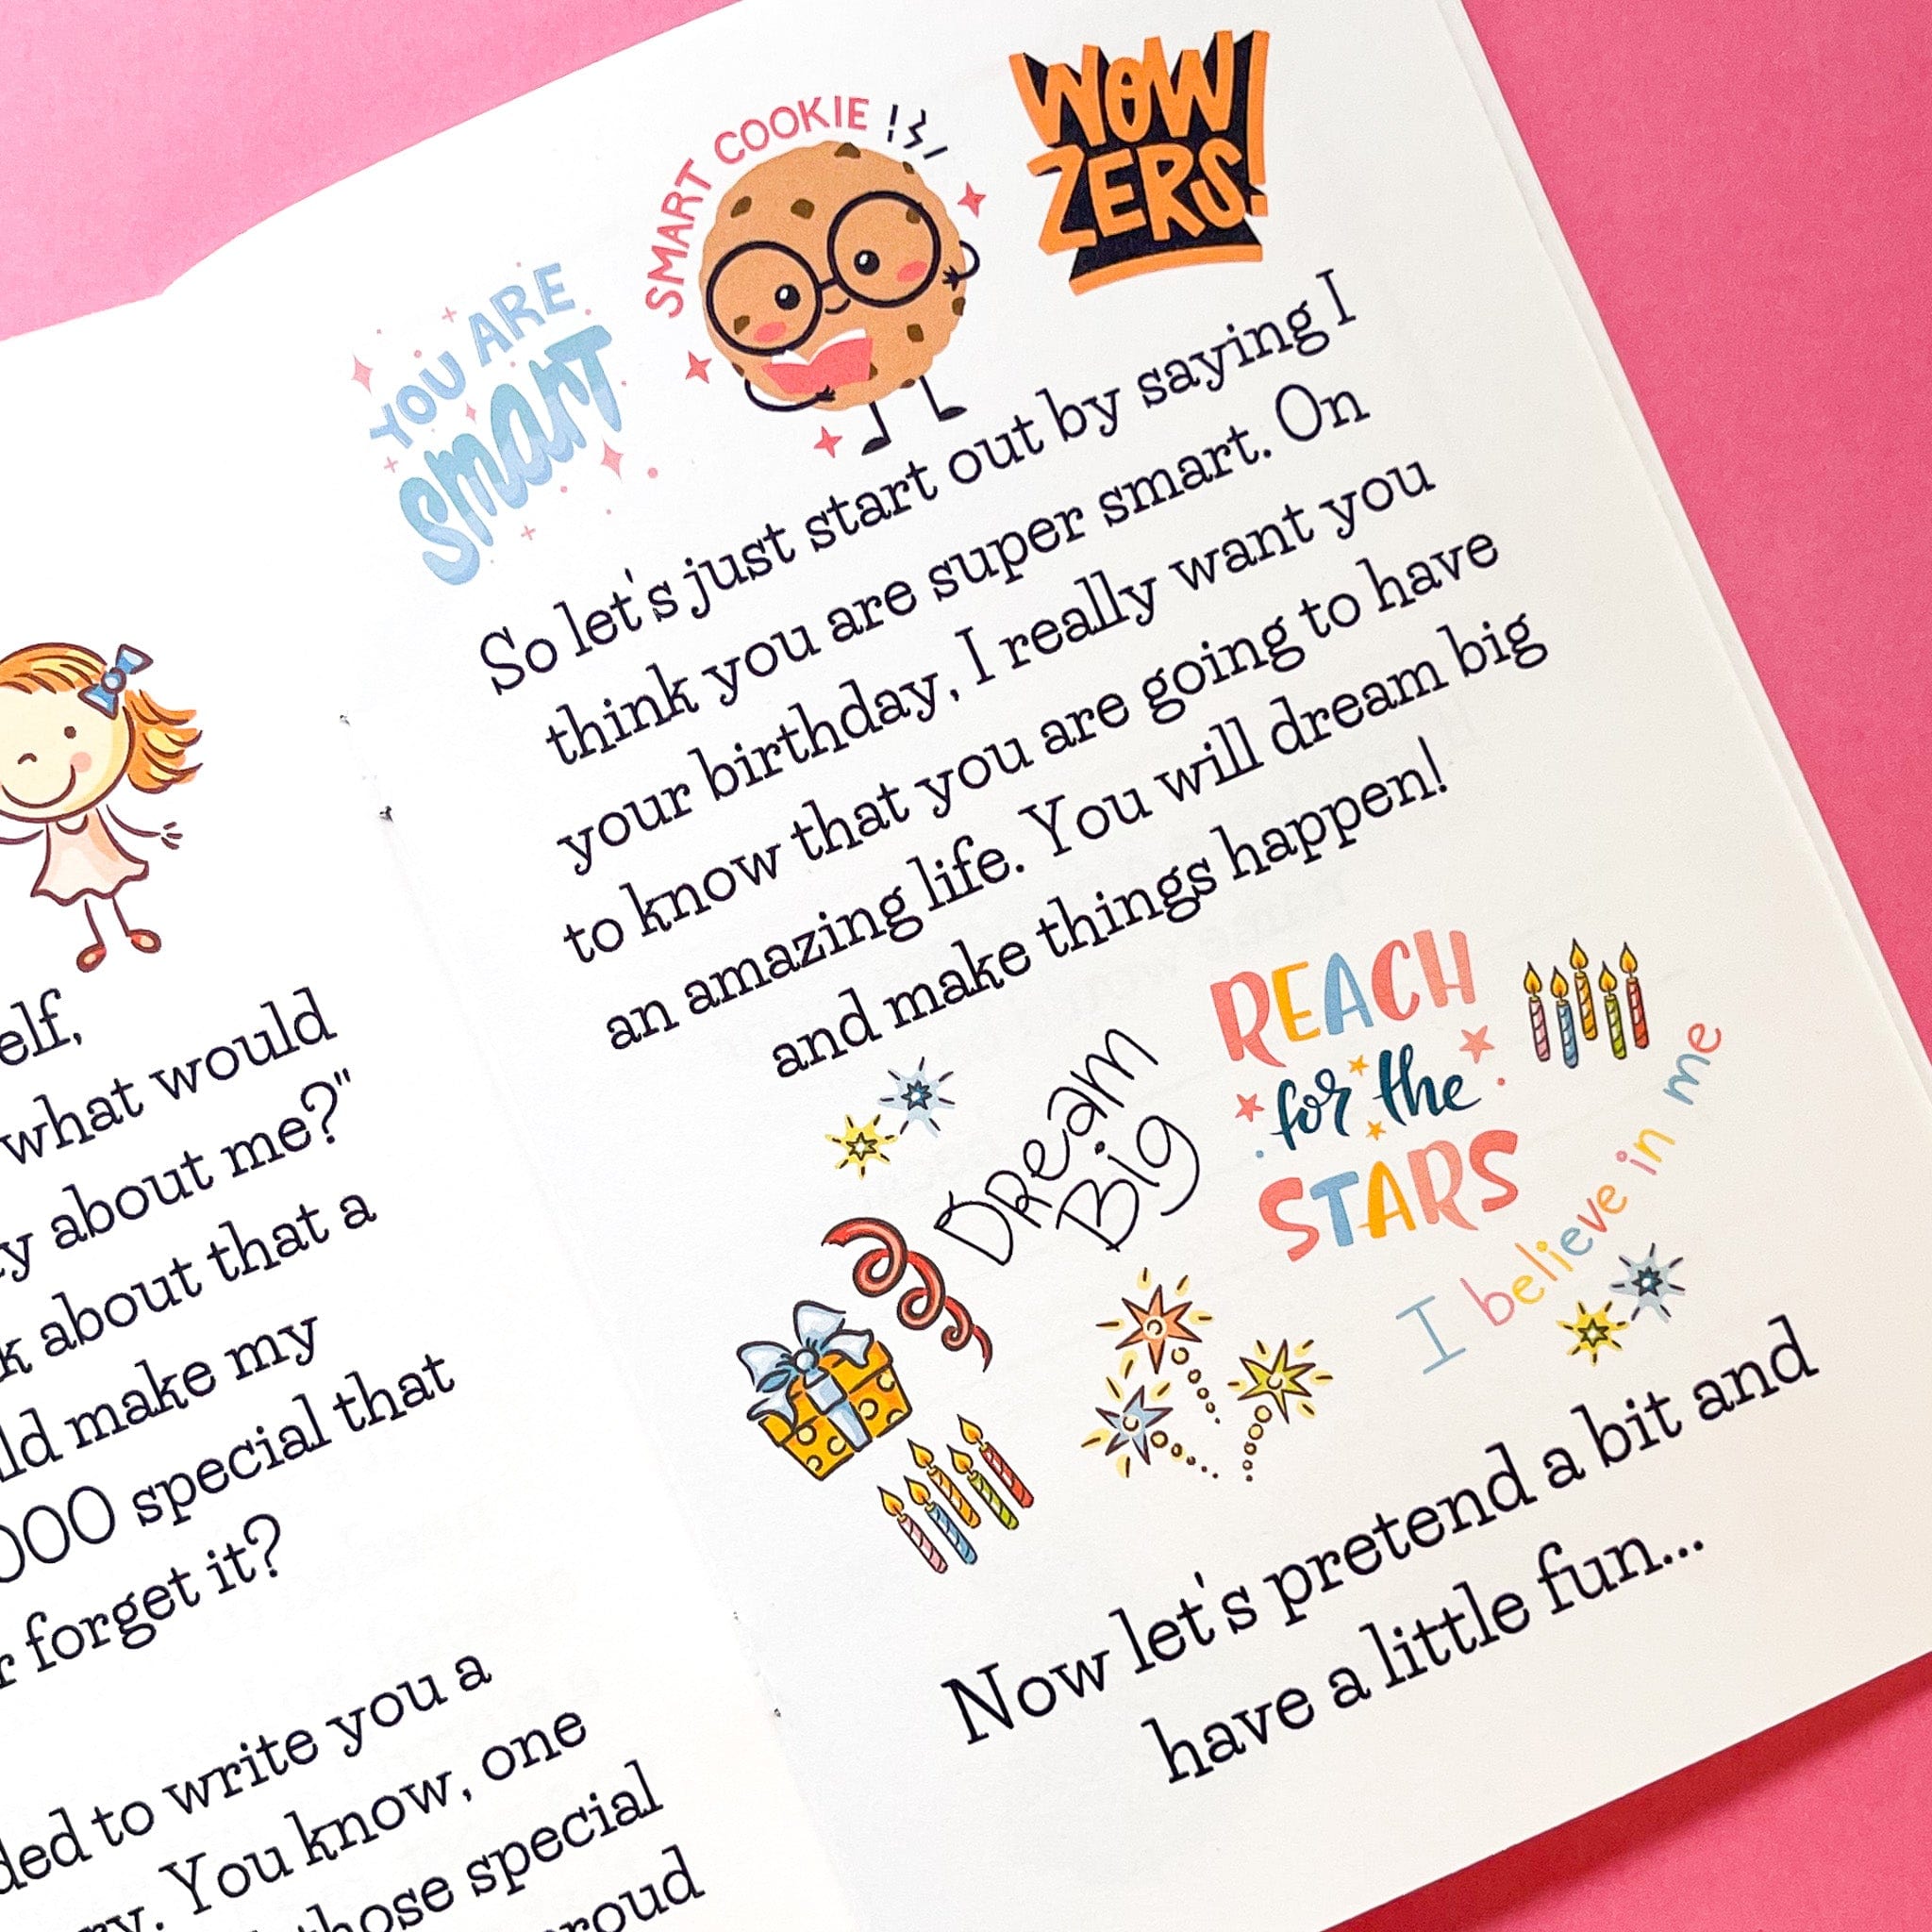 elf,
what would
about me?"
about that a
make my
special that
forget it?
to write you a
You know, one
those special
YOU ARE
smart
SMART COOKIE!
WOW
ZERS!
So let's just start out by saying I
think you are super smart. On
your birthday, I really want you
to know that you are going to have
an amazing life. You will dream big
and make things happen!
Dream
Big
REACH
for the
STARS
I believe in me
Now let's pretend a bit and
have a little fun...